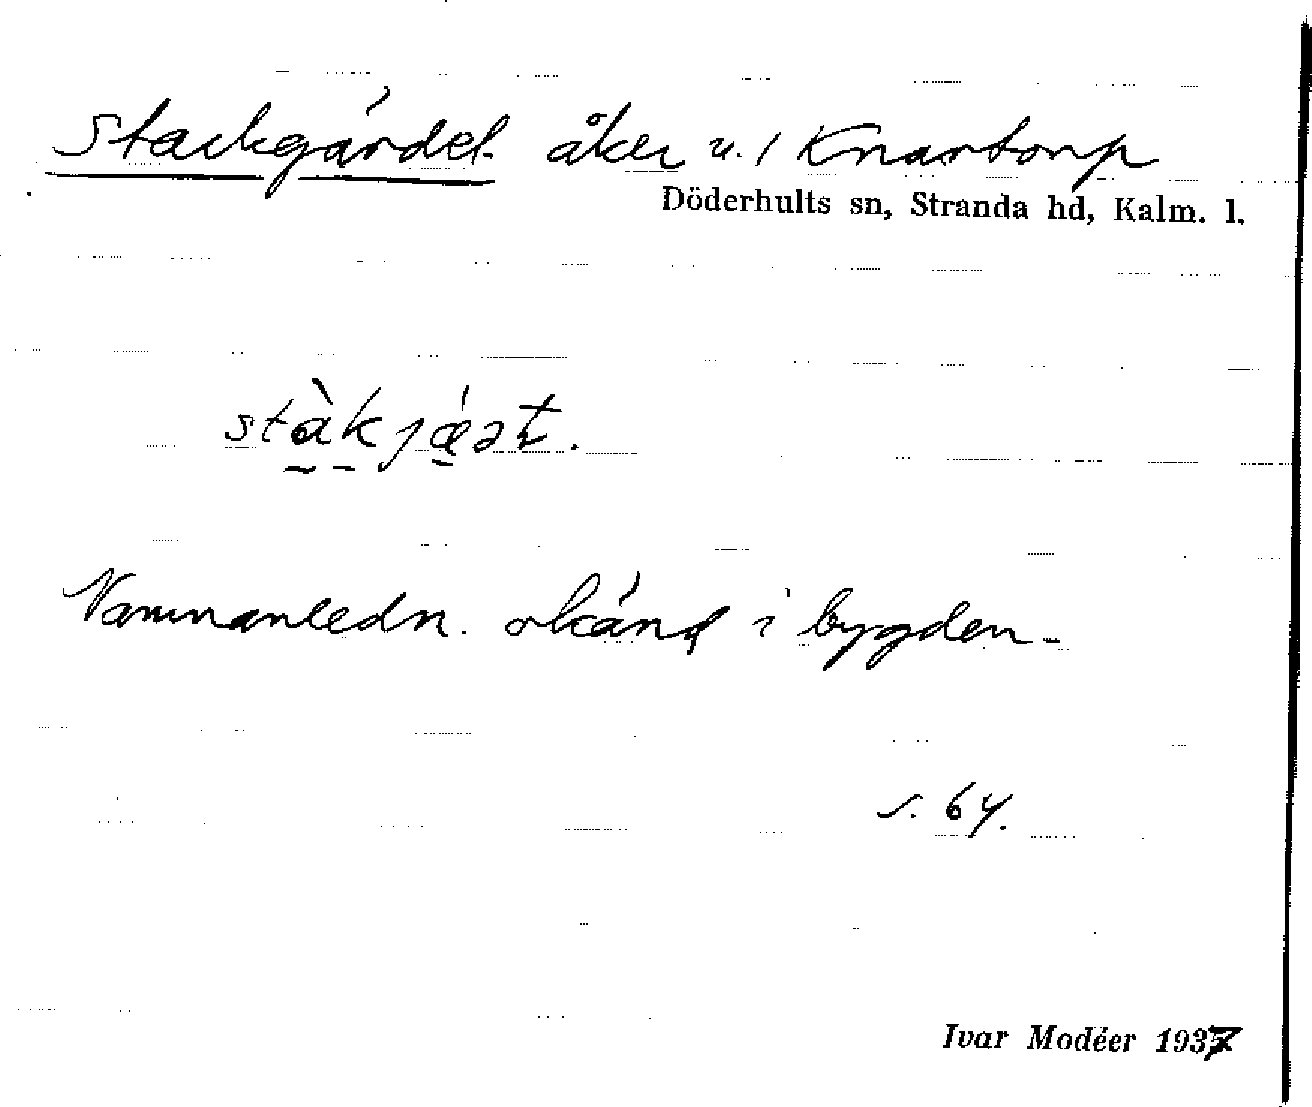 Stackgärdet åker u. / Knartorp
Döderhults sn, Stranda hd, Kalm. l.
Namnanledn. okänd i bygden.
s. 64.
Ivar Modéer 1937